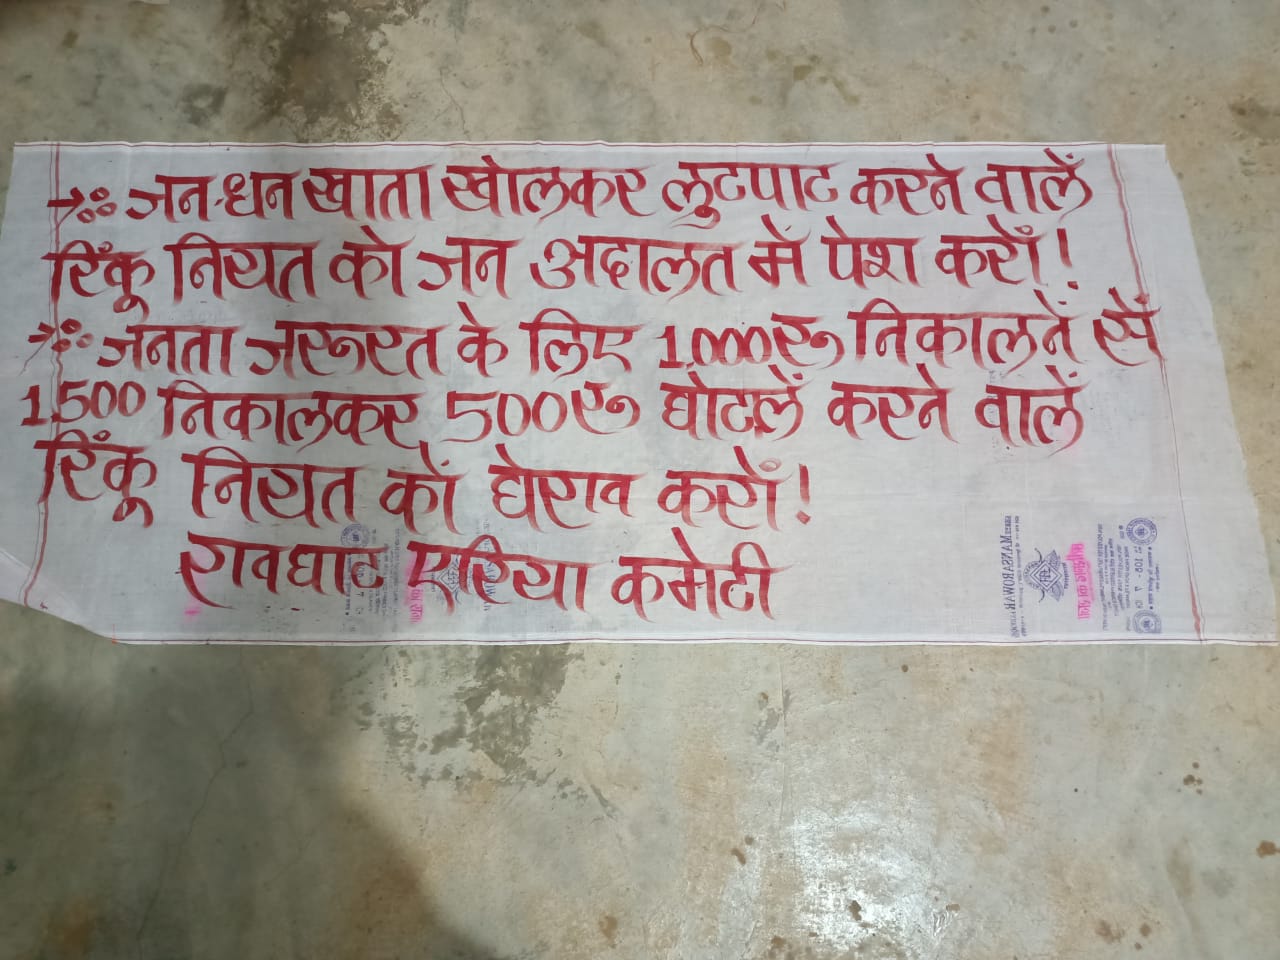 →ஃ जन-धन खाता खोलकर लुटपाट करने वालें
रिंकू नियत को जन अदालत में पेश करों!
→ஃ जनता जरूरत के लिए 1,000रू निकालनें सें
1,500 निकालकर 500रू घोटलें करने वालें
रिंकू नियत कों घेराव करों!
रावघाट एरिया कमेटी
MANSAROWAR